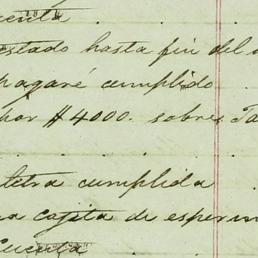 cuenta
estado hasta fin del a
pagaré cumplido
por $4000. sobre Ta
letra cumplida
na cajita de esperm
Cucuta